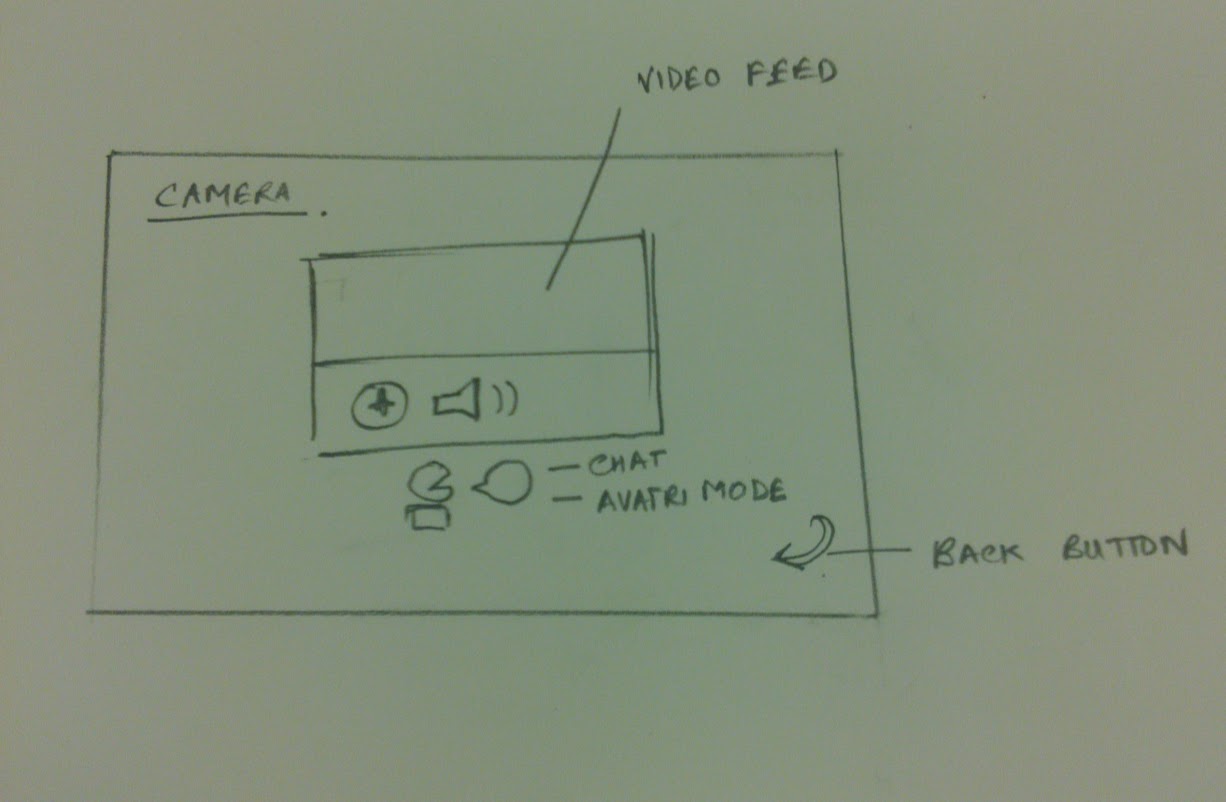 VIDEO FEED
CAMERA.
CHAT
AVATRI MODE
BACK BUTTON